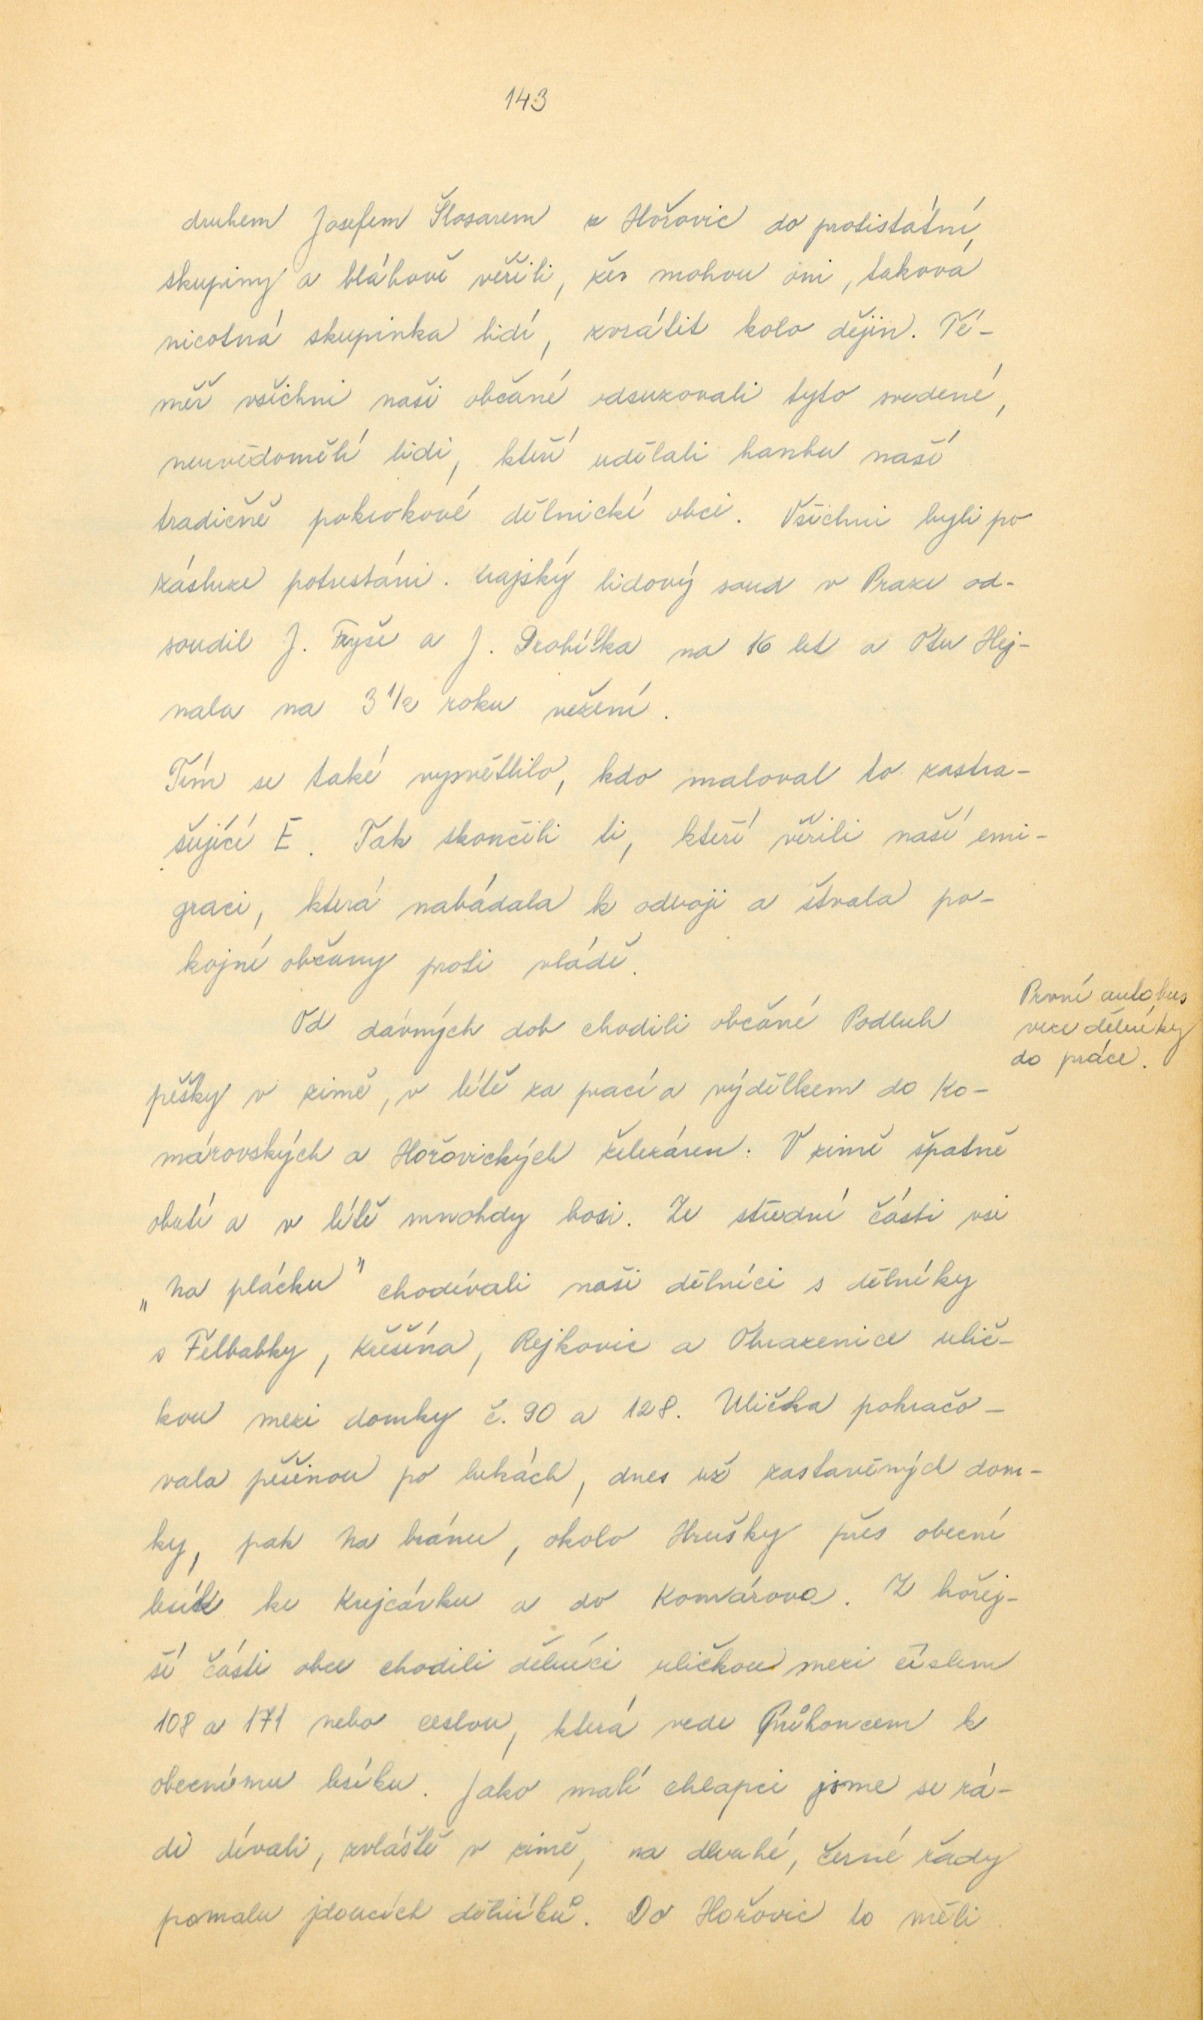 143
druhem Josefem Šlosarem z Hořovic do protistátní,
skupiny a bláhově věřili, že mohou oni, taková
nicotná skupinka lidí, zvrátit kolo dějin. Té-
měř všichni naši občané odsuzovali tyto svedené,
neuvědomělé lidi, kteří udělali hanbu naší
tradičně pokrokové dělnické obci. Všichni byli po
zásluze potrestáni. Krajský lidový soud v Praze od-
soudil J. Fryše a J. Drobílka na 16 let a Otu Hej-
nala na 3 1/2 roku vežení.
Tím se také vysvětlilo, kdo maloval to zastra-
šující E. Tak skončili ti, kteří věřili naší emi-
graci, která nabádala k odboji a štvala po-
kojné občany proti vládě.
První autobus
veze dělníky
do práce.
Od dávných dob chodili občané Podluh
pěšky v zimě, v létě za prací a výdělkem do Ko-
márovských a Hořovických železáren. V zimě špatně
obutí a v létě mnohdy bosi. Ze střední části vsi
„Na plácku" chodívali naši dělníci s dělníky
s Felbabky, Křešína, Rejkovic a Ohrazenice ulič-
kou mezi domky č. 90 a 128. Ulička pokračo-
vala pěšinou po lukách, dnes už zastavěných dom-
ky, pak Na bránu, okolo Hrušky přes obecní
lesík ke Krejcárku a do Komárova. Z hořej-
ší části obce chodili dělníci uličkou mezi číslem
108 a 171 nebo cestou, která vede Průhoncem k
obecnímu lesíku. Jako malí chlapci jsme se rá-
di dívali, zvláště v zimě, na dlouhé, černé řady
pomalu jdoucích dělníků. Do Hořovic to měli